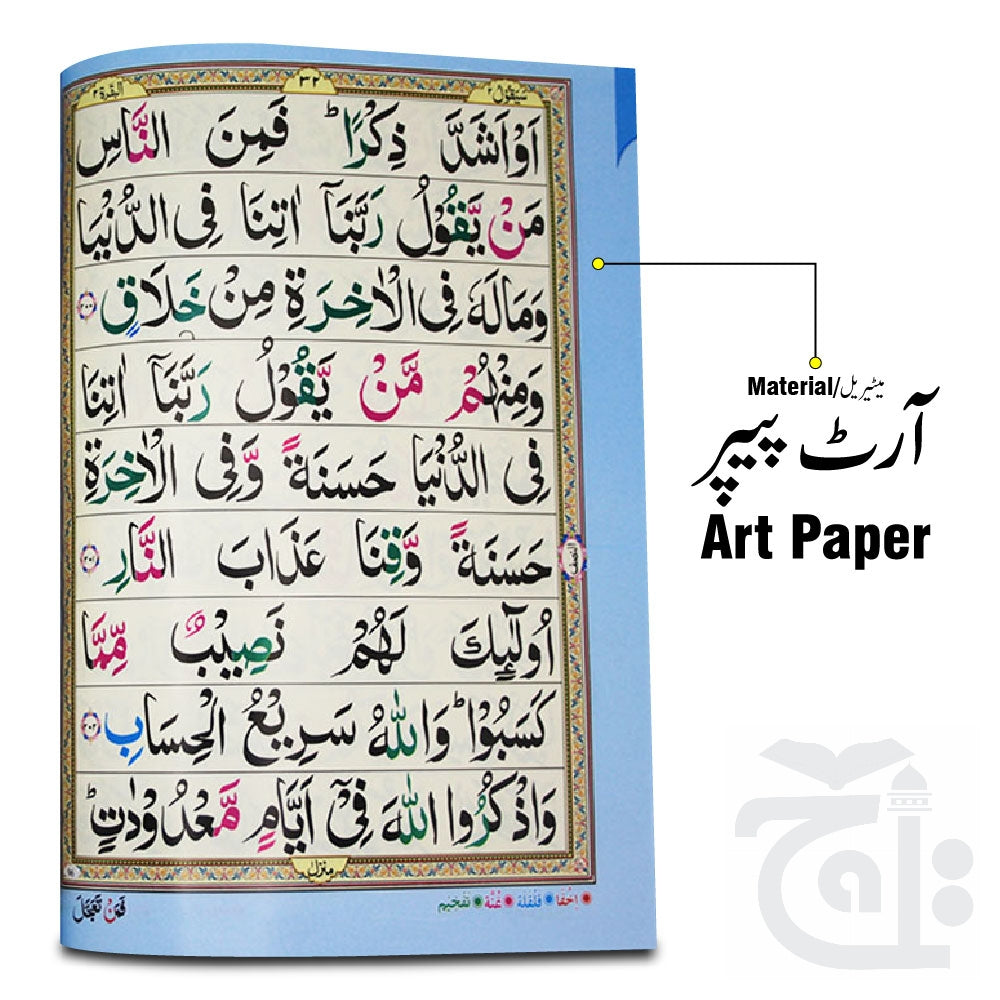 سَيَقُوْلُ ٢
٣٢
اَلْبَقَرَة ٢
اَوْ اَشَدَّ ذِكْرًا ؕ فَمِنَ النَّاسِ
مَنْ يَّقُوْلُ رَبَّنَاۤ اٰتِنَا فِى الدُّنْيَا
وَمَا لَهٗ فِى الْاٰخِرَةِ مِنْ خَلَاقٍ ۲۰۰
وَمِنْهُمْ مَّنْ يَّقُوْلُ رَبَّنَاۤ اٰتِنَا
فِى الدُّنْيَا حَسَنَةً وَّفِى الْاٰخِرَةِ
حَسَنَةً وَّقِنَا عَذَابَ النَّارِ ۲۰۱
اُولٰٓئِكَ لَهُمْ نَصِيْبٌ مِّمَّا
كَسَبُوْا ؕ وَاللّٰهُ سَرِيْعُ الْحِسَابِ ۲۰۲
وَاذْكُرُوا اللّٰهَ فِىْۤ اَيَّامٍ مَّعْدُوْدٰتٍ ؕ
منزل
اِخْفَا قَلْقَلَه غُنَّه تَفْخِيْم
فَمَنْ تَعَجَّلَ
Material/میٹیریل
آرٹ پیپر
Art Paper